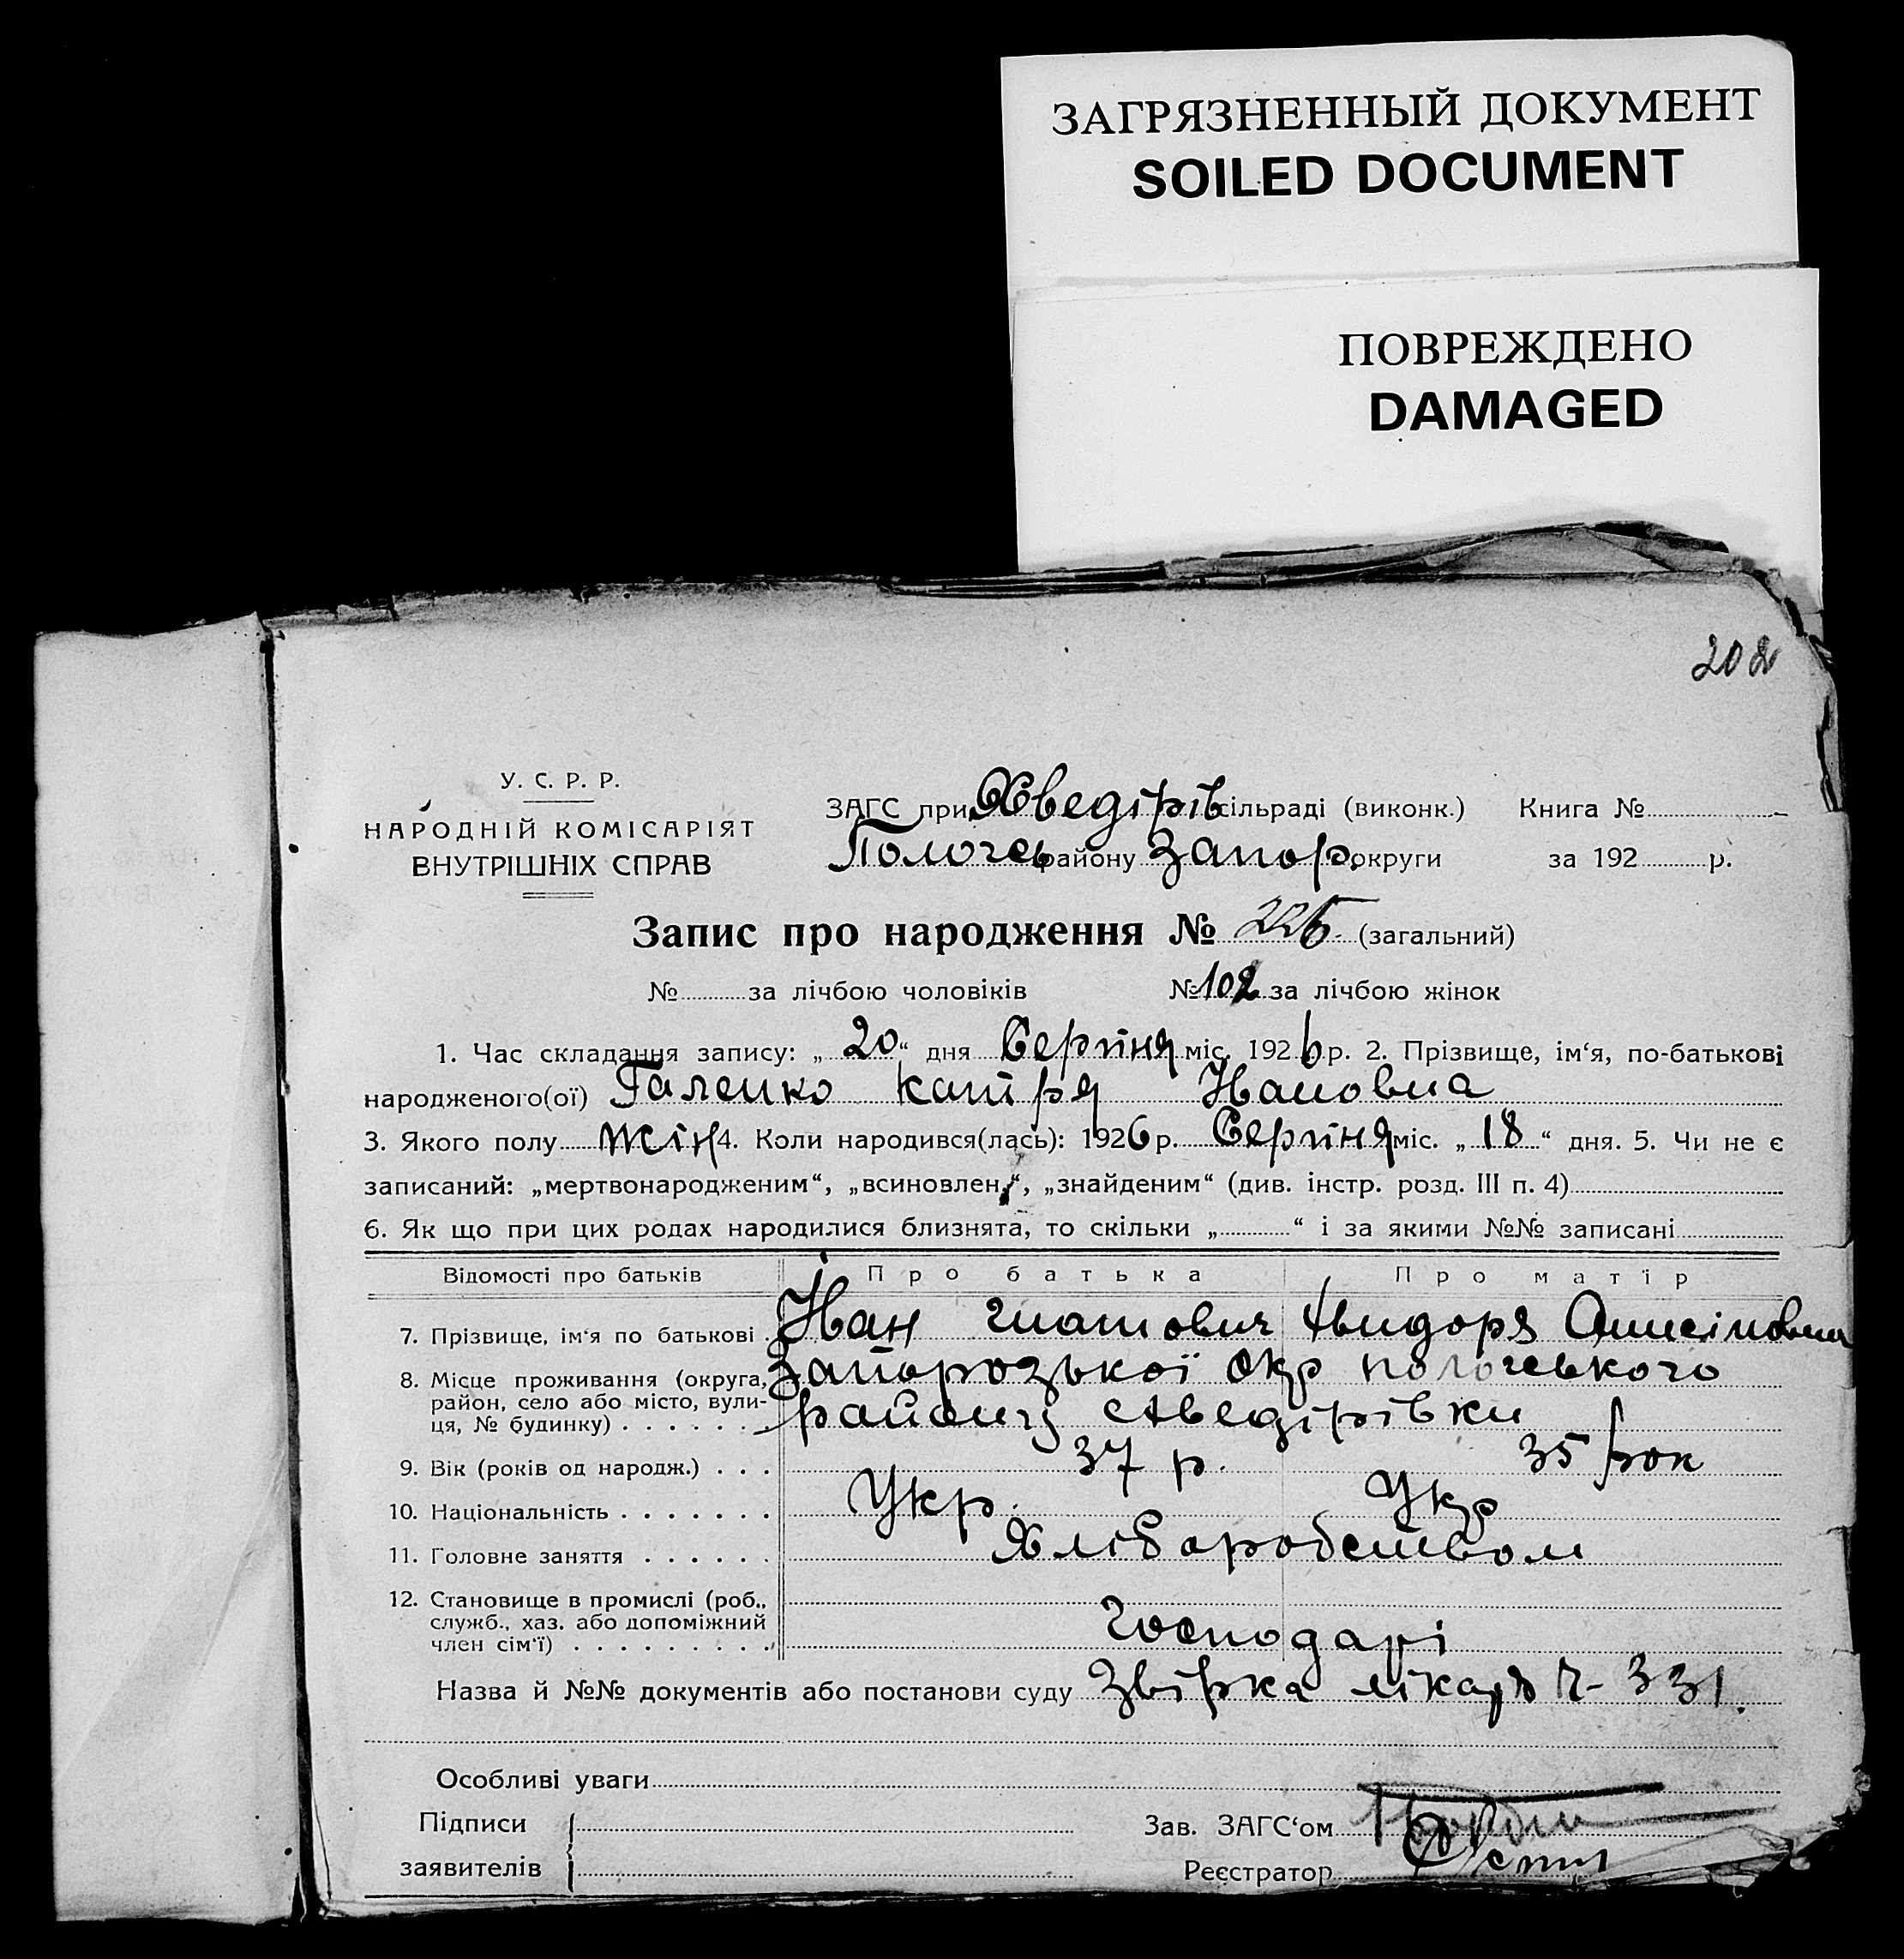 ЗАГРЯЗНЕННЫЙ ДОКУМЕНТ
SOILED DOCUMENT
ПОВРЕЖДЕНО
DAMAGED
202
У. С. Р. Р.
НАРОДНІЙ КОМІСАРІЯТ
ВНУТРІШНІХ СПРАВ
ЗАГС при Хведірів сільраді (виконк.) Книга №
Пологсь району Запор. округи за 192 р.
Запис про народження № 226. (загальний)
№ за лічбою чоловіків № 102 за лічбою жінок
1. Час складання запису: „ 20 “ дня Серпня міс. 1926 р. 2. Прізвище, ім‘я, по-батькові
народженого(ої) Галенко Катря Івановна
3. Якого полу жін 4. Коли народився(лась): 1926 р. Серпня міс. „ 18 “ дня. 5. Чи не є
записаний: „мертвонародженим“, „всиновлен.“, „знайденим“ (див. інстр. розд. III п. 4)
6. Як що при цих родах народилися близнята, то скільки „ “ і за якими №№ записані
Відомості про батьків Про батька Про матір
7. Прізвище, ім‘я по батькові . Іван Гнатович Хвидоря Онисімовна
8. Місце проживання (округа, Запорозької окр пологського
район, село або місто, вули- району Хведірівки
ця, № будинку) . . . . . . .
9. Вік (років од народж.) . . . 37 р. 35 рок
10. Національність . . . . . . . Укр. Укр
11. Головне заняття . . . . . . Хліборобством
12. Становище в промислі (роб.,
служб., хаз. або допоміжний
член сім‘ї) . . . . . . . . . . Господарі
Назва й №№ документів або постанови суду Звірка лікаря Ч- 331.
Особливі уваги
Підписи
заявителів
Зав. ЗАГС‘ом
Реєстратор